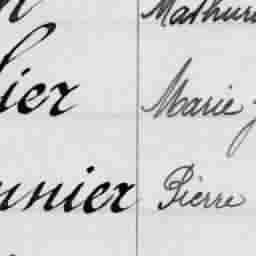 Mathuri
lier Marie J
unier Pierre